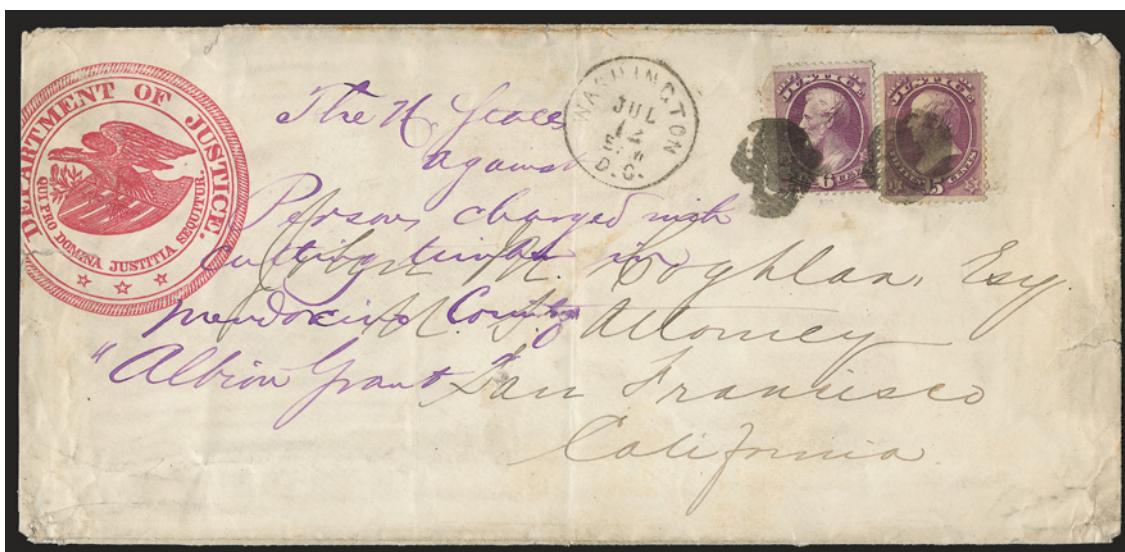 DEPARTMENT OF JUSTICE.
QUI PRO DOMINA JUSTITIA SEQUITUR.
WASHINGTON
JUL
12
D.C.
JUSTICE
6
JUSTICE
15 CENTS
The U. States
against
Persons charged with
cutting timber in
Mendocino County
"Albion Grant"
John M. Coghlan, Esq.
U. S. Attorney
San Francisco
California